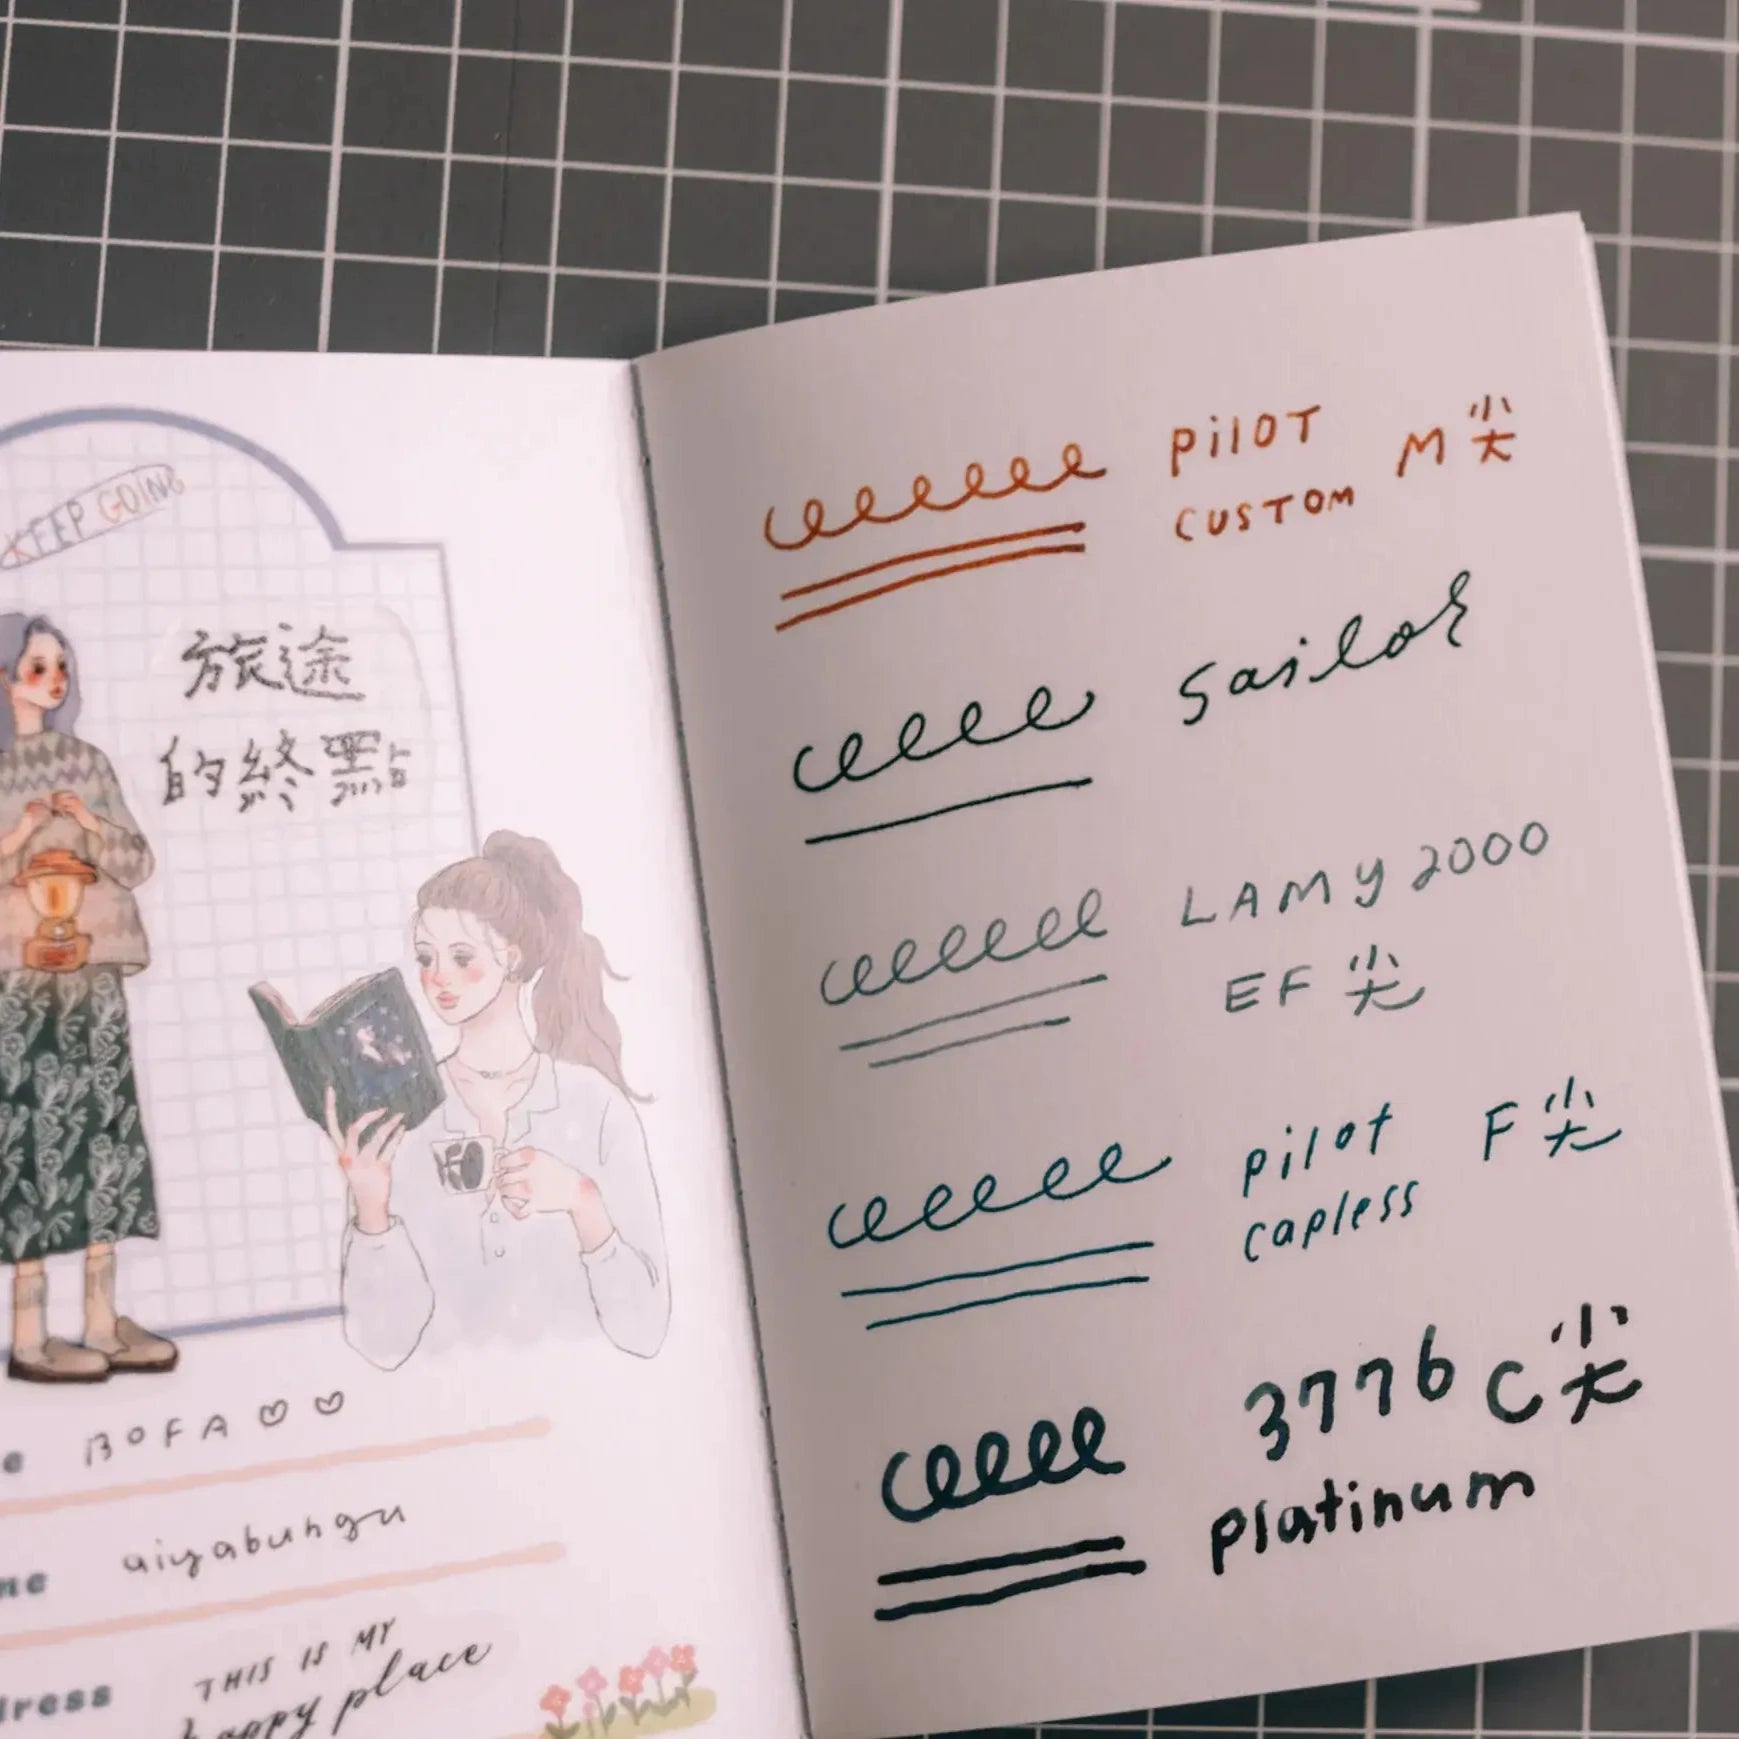 KEEP GOING
旅途
的終點
e BOFA♡♡
me aiyabungu
dress THIS IS MY
happy place
PiLOT M尖
CUSTOM
Sailor
LAMY 2000
EF尖
pilot F尖
capless
3776 C尖
platinum